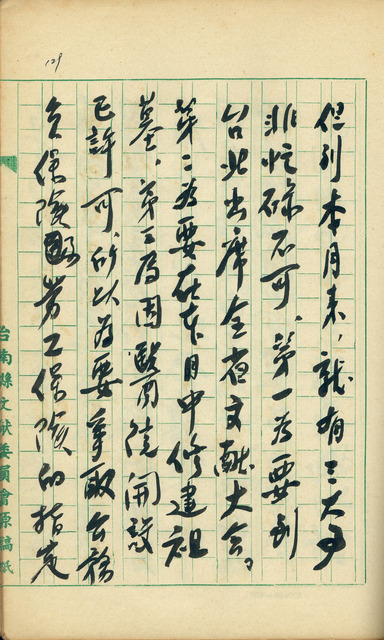 但到本月末，就有三大事
非忙碌不可、第一為要到
台北出席全省文獻大会。
第二為要在本月中修建祖
墓、第三為因醫院開設
已許可、所以為要爭取公務
員保險及勞工保險的指定
台南縣文獻委員會原稿紙
129